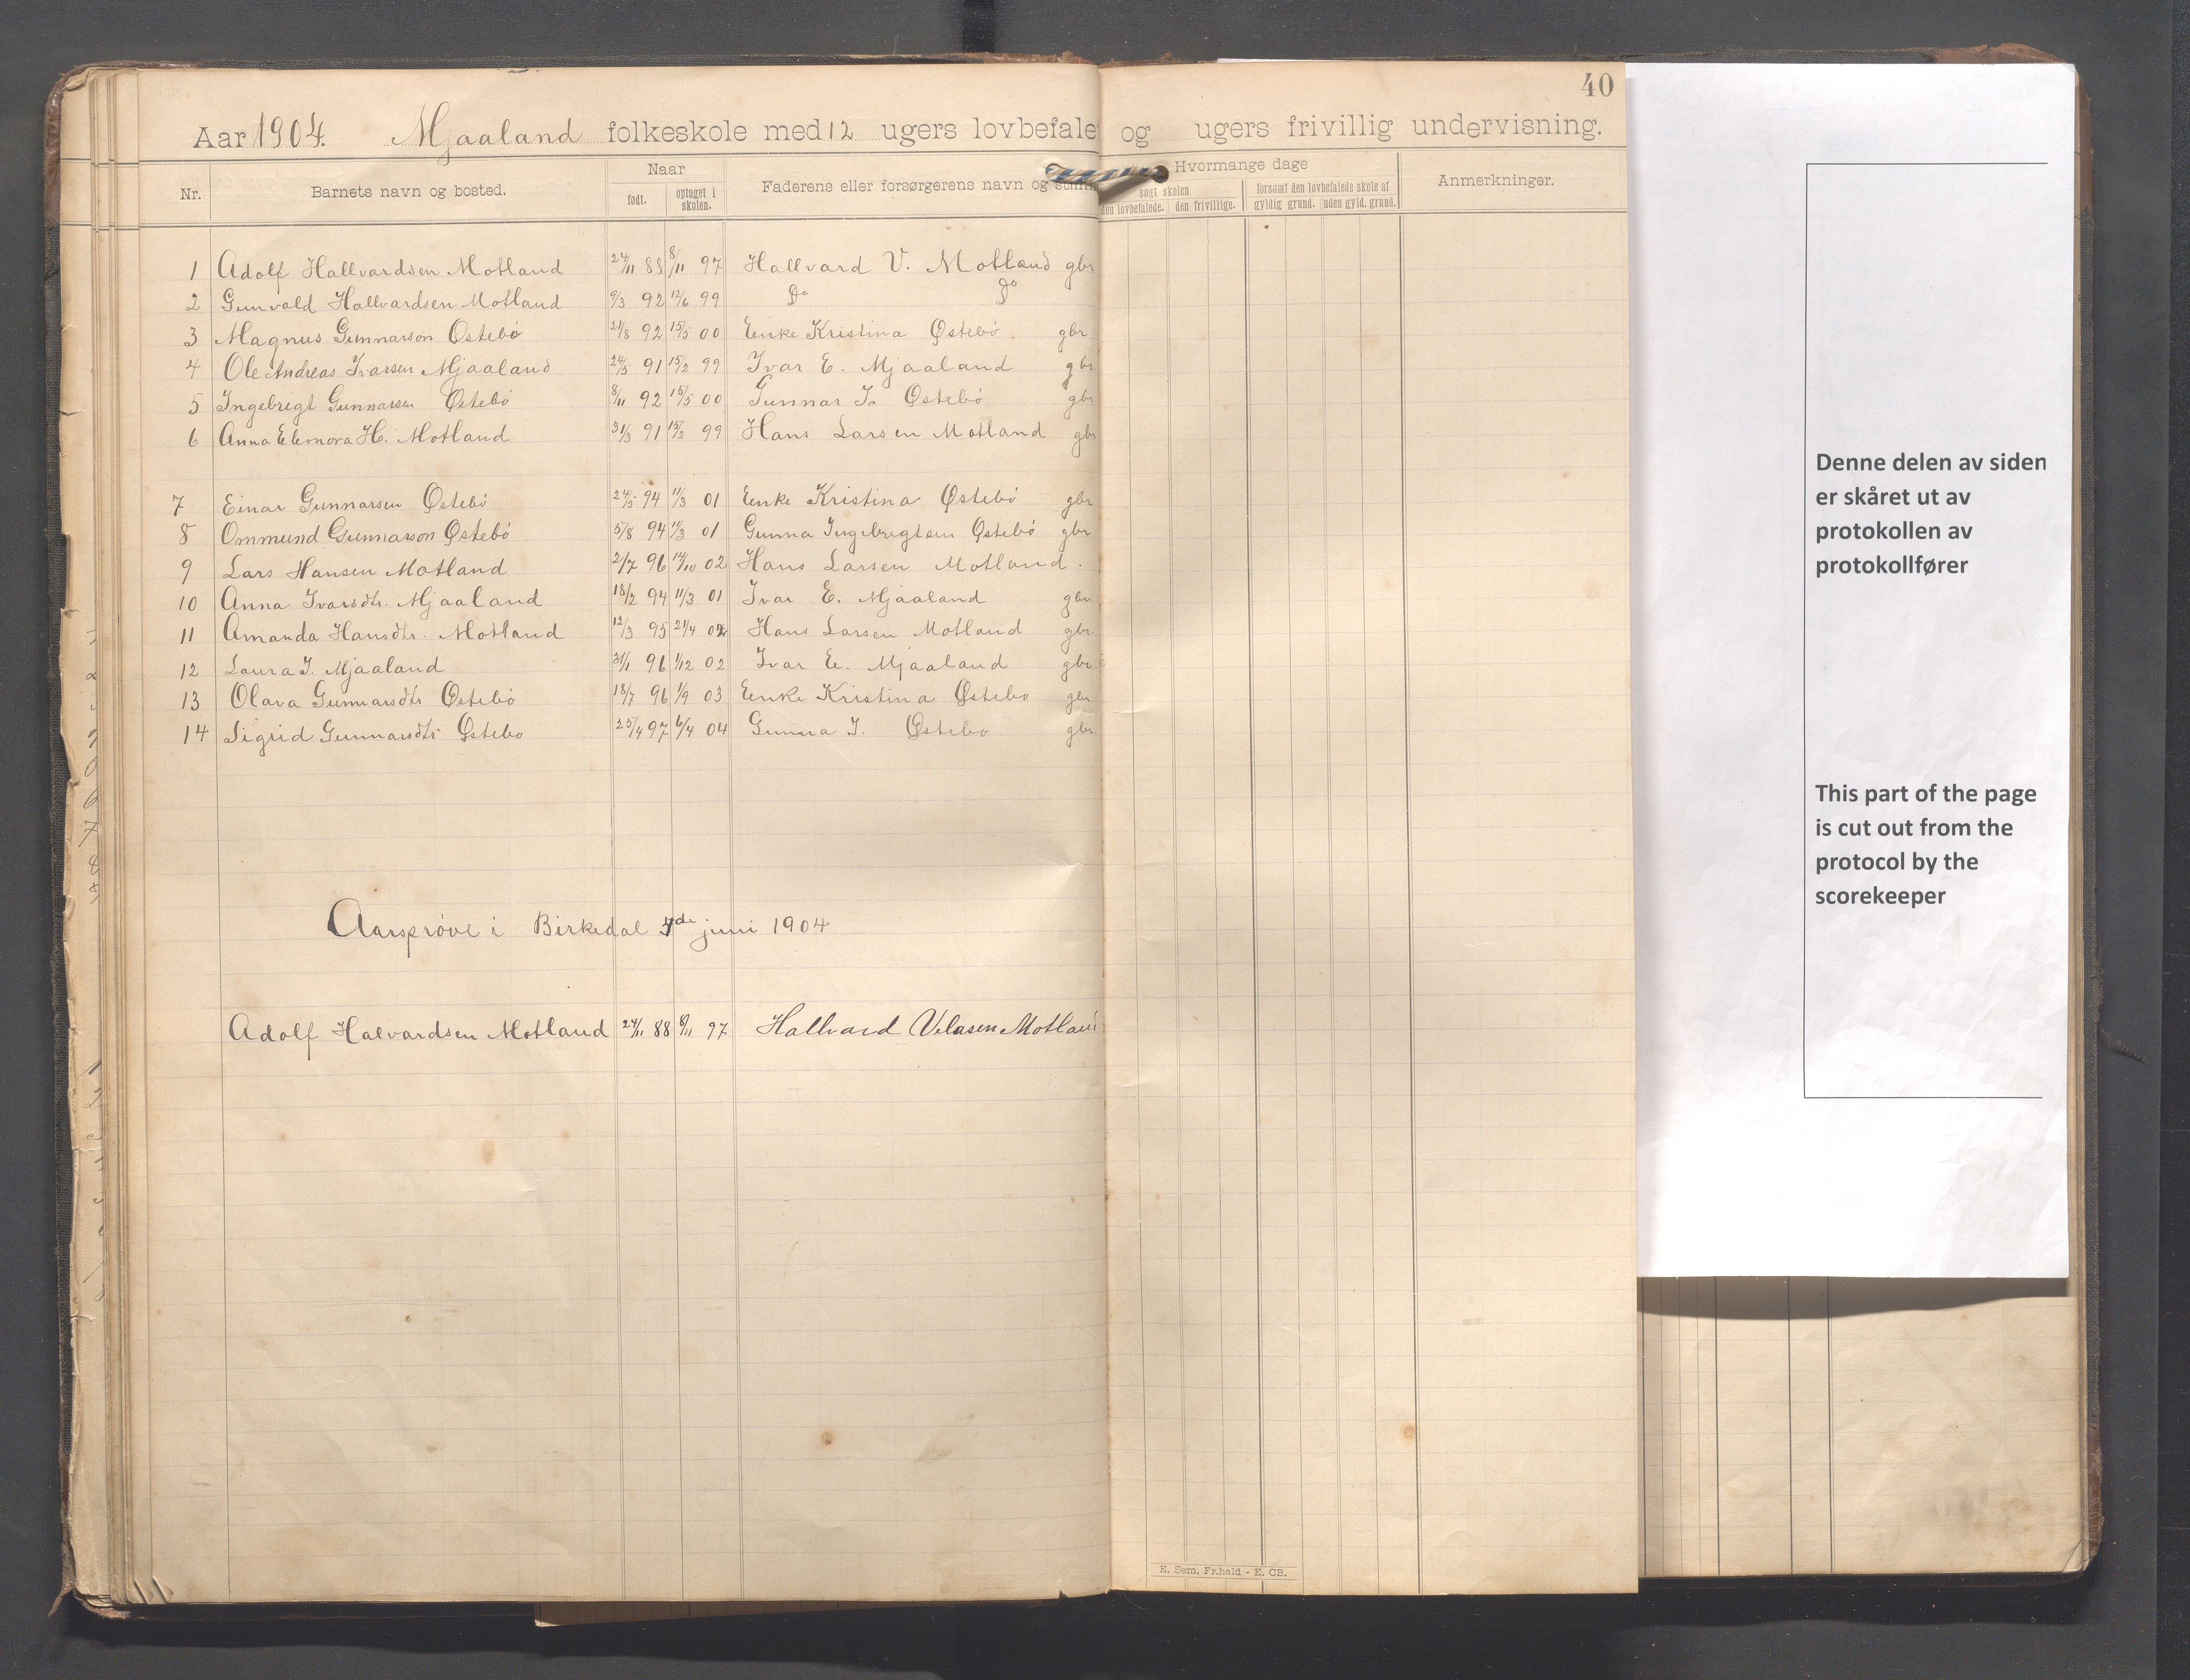 40
Aar 1904. Mjaaland folkeskole med 12 ugers lovbefale og ugers frivillig undervisning.
Nr. Barnets navn og bosted. Naar Faderens eller forsørgerens navn og Hvormange dage Anmerkninger.
født. optaget i skolen. søgt skolen forsømt den lovbefalede skole af
den lovbefalede. den frivillige. gyldig grund. uden gyld. grund.
1 Adolf Hallvardsen Motland 24/11 88 8/11 97 Hallvard V. Motland gbr
2 Gunvald Hallvardsen Motland 9/3 92 12/6 99 Do Do
3 Magnus Gunnarson Østebö 21/8 92 15/5 00 Enke Kristina Østebö. gbr
4 Ole Andreas Ivarsen Mjaaland 24/5 91 15/2 99 Ivar E. Mjaaland gbr
5 Ingebregt Gunnarsen Østebö 8/11 92 15/5 00 Gunnar I. Østebö gbr
6 Anna Eleonora H. Motland 31/3 91 15/2 99 Hans Larsen Motland gbr
7 Einar Gunnarsen Østebö 24/5 94 11/3 01 Enke Kristina Østebö gbr
8 Ommund Gunnarson Østebö 5/8 94 11/3 01 Gunna Ingebregtsen Østebö gbr
9 Lars Hansen Motland 2/7 96 14/10 02 Hans Larsen Motland.
10 Anna Ivarsdtr. Mjaaland 18/2 94 11/3 01 Ivar E. Mjaaland gbr.
11 Amanda Hansdtr. Motland 12/3 95 21/4 02 Hans Larsen Motland gbr.
12 Laura I. Mjaaland 31/1 96 1/12 02 Ivar E. Mjaaland gbr
13 Olava Gunnarsdtr Østebö 18/7 96 1/9 03 Enke Kristina Østebo gbr
14 Sigrid Gunnarsdtr Østebo 25/4 97 6/4 04 Gunna I. Østebo gbr.
Aarsprøve i Birkedal 7de juni 1904
Adolf Halvardsen Motland 24/11 88 8/11 97 Hallvard Velasen Motland
E. Sem, Fr.hald - E. CB.
Denne delen av siden
er skåret ut av
protokollen av
protokollfører
This part of the page
is cut out from the
protocol by the
scorekeeper